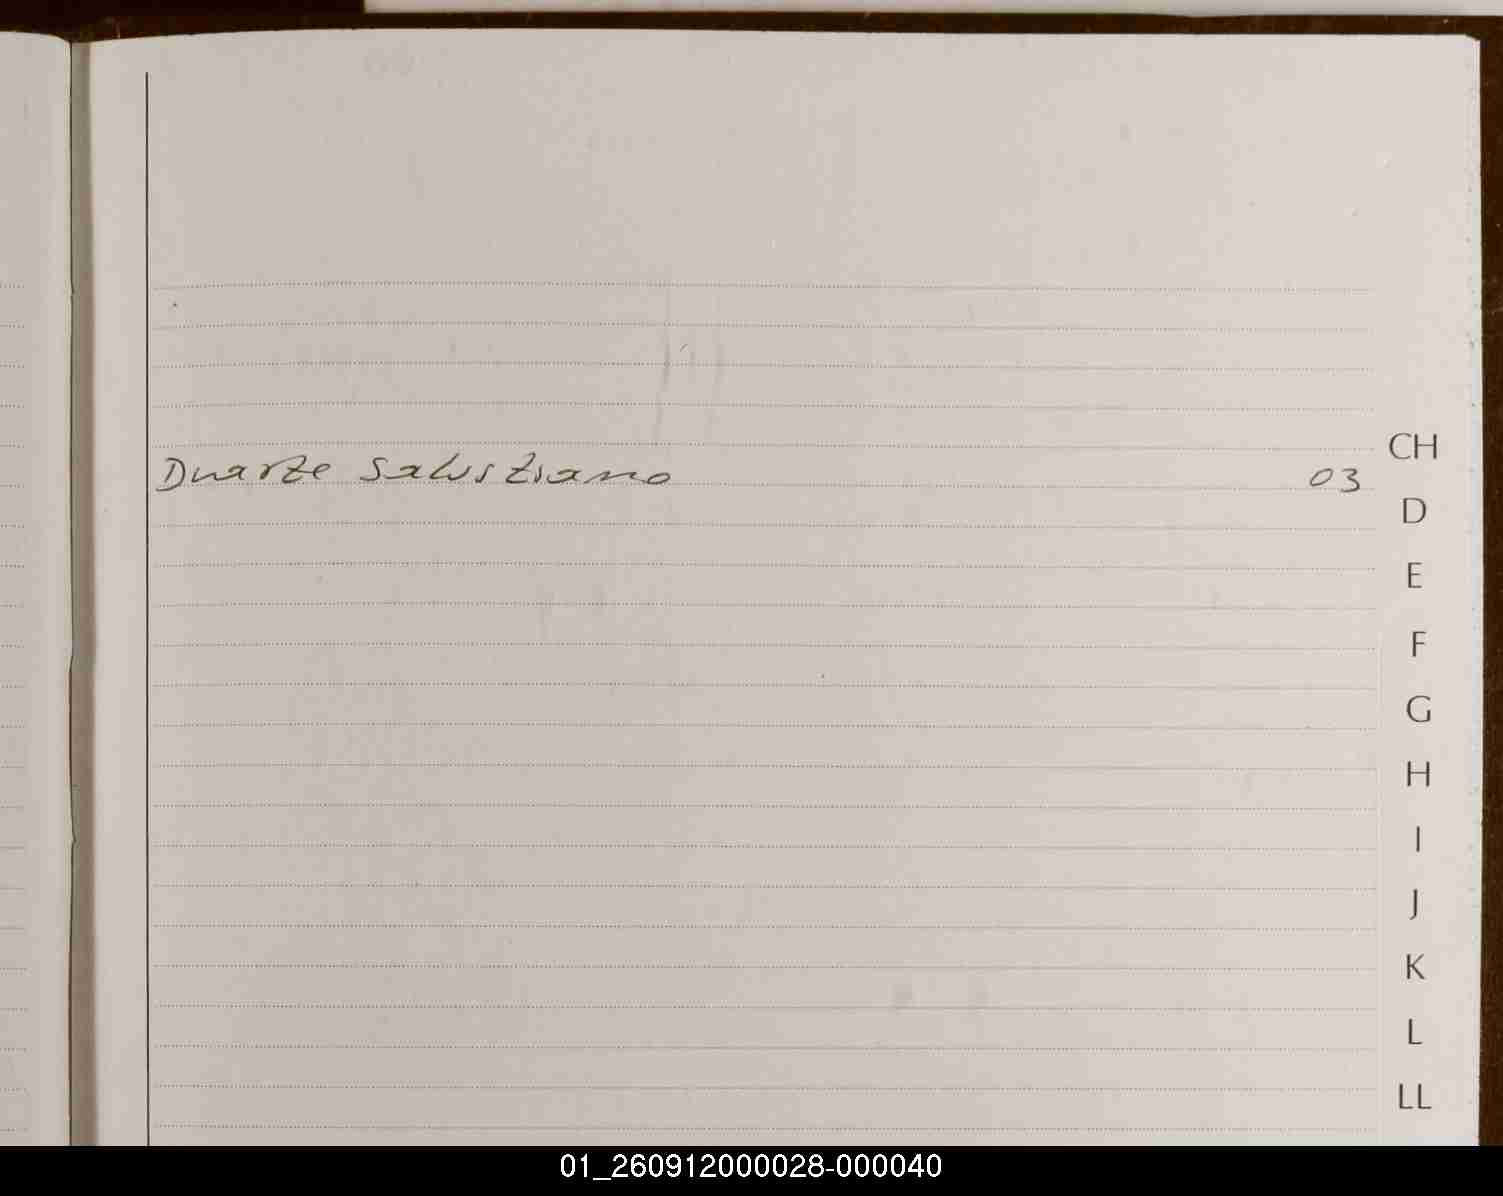 CH
Duarte Salustiano 03
D
E
F
G
H
I
J
K
L
LL
01_260912000028-000040